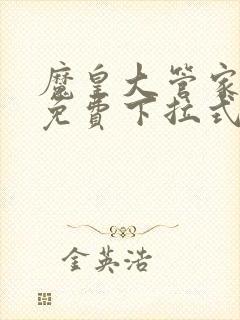 魔皇大管家
免費下拉式
金英浩